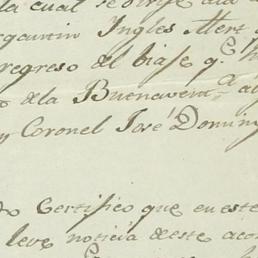 la cual se dirije a la
Bergantin Ingles Mert
regreso del biaje q.e h
de la Buenavent.a a
y Coronel José Doming
Certifico que en este
leve noticia de este aco